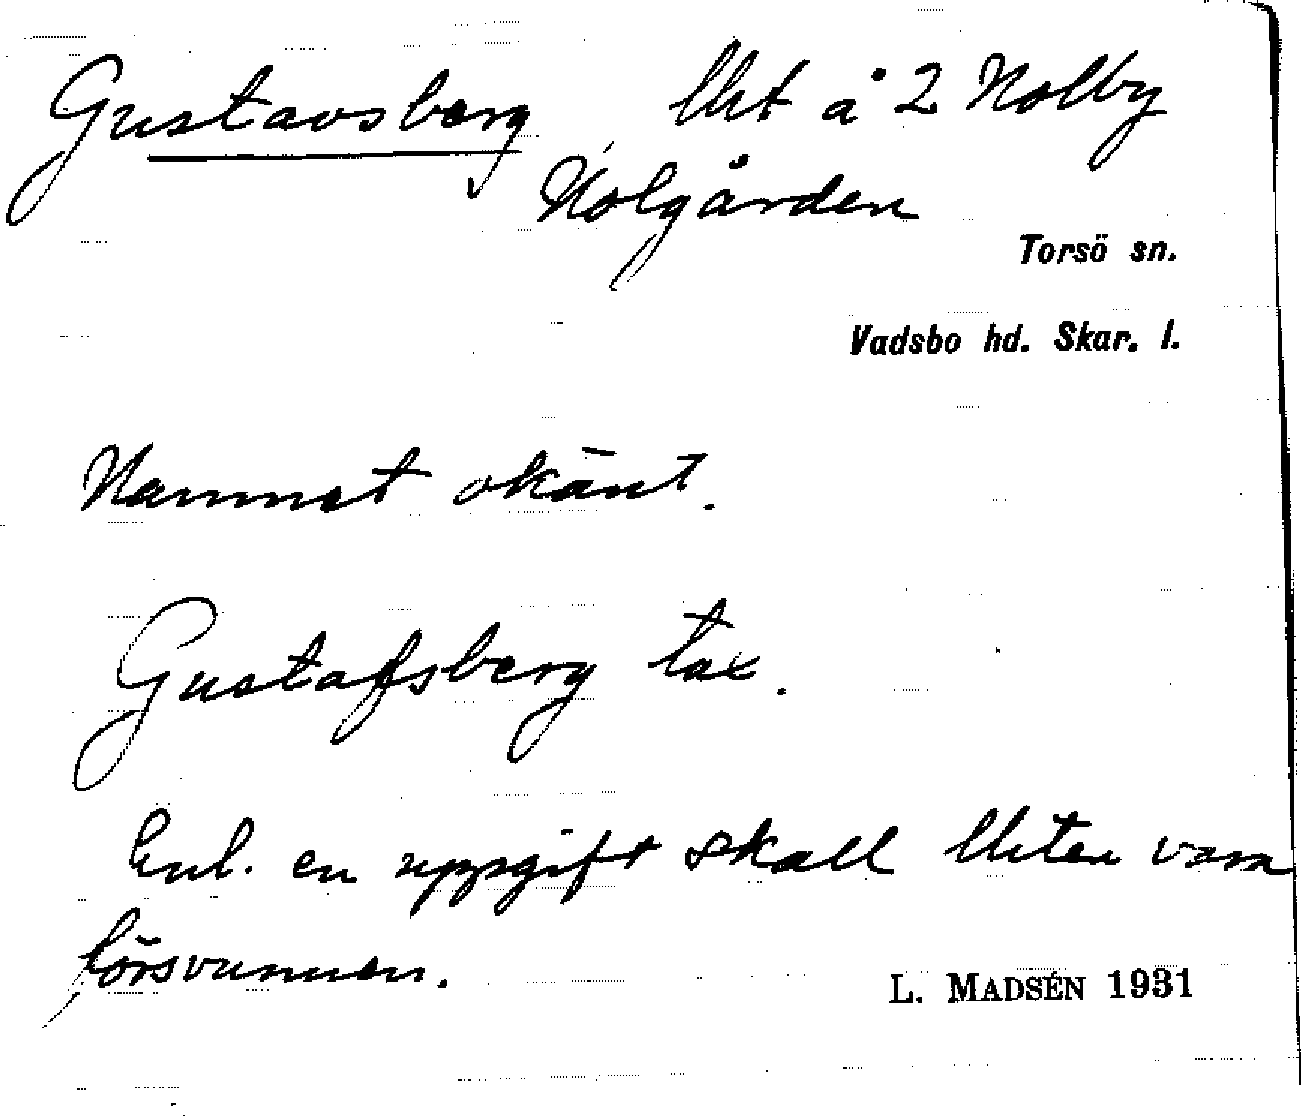 Gustavsberg, lht å 2 Nolby
Nolgården
Torsö sn.
Vadsbo hd. Skar. l.
Namnet okänt.
Gustafsberg tax.
Enl. en uppgift skall lhten vara
försvunnen.
L. MADSÉN 1931